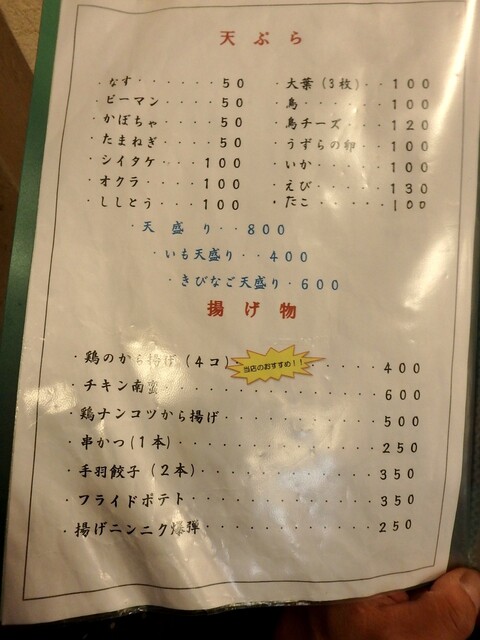 天ぷら
・なす・・・・・・50
・ピーマン・・・・50
・かぼちゃ・・・・50
・たまねぎ・・・・50
・シイタケ・・・100
・オクラ・・・・100
・ししとう・・・100
・大葉(3枚)・・100
・鳥・・・・・・100
・鳥チーズ・・・120
・うずらの卵・・100
・いか・・・・・100
・えび・・・・・130
・たこ・・・・・100
・天盛り・・800
・いも天盛り・・400
・きびなご天盛り・600
揚げ物
・鶏のから揚げ(4コ)・当店のおすすめ!!・・・・・400
・チキン南蛮・・・・・・・・・・・・600
・鶏ナンコツから揚げ・・・・・・・・500
・串かつ(1本)・・・・・・・・・・・250
・手羽餃子(2本)・・・・・・・・・・350
・フライドポテト・・・・・・・・・・350
・揚げニンニク爆弾・・・・・・・・・250